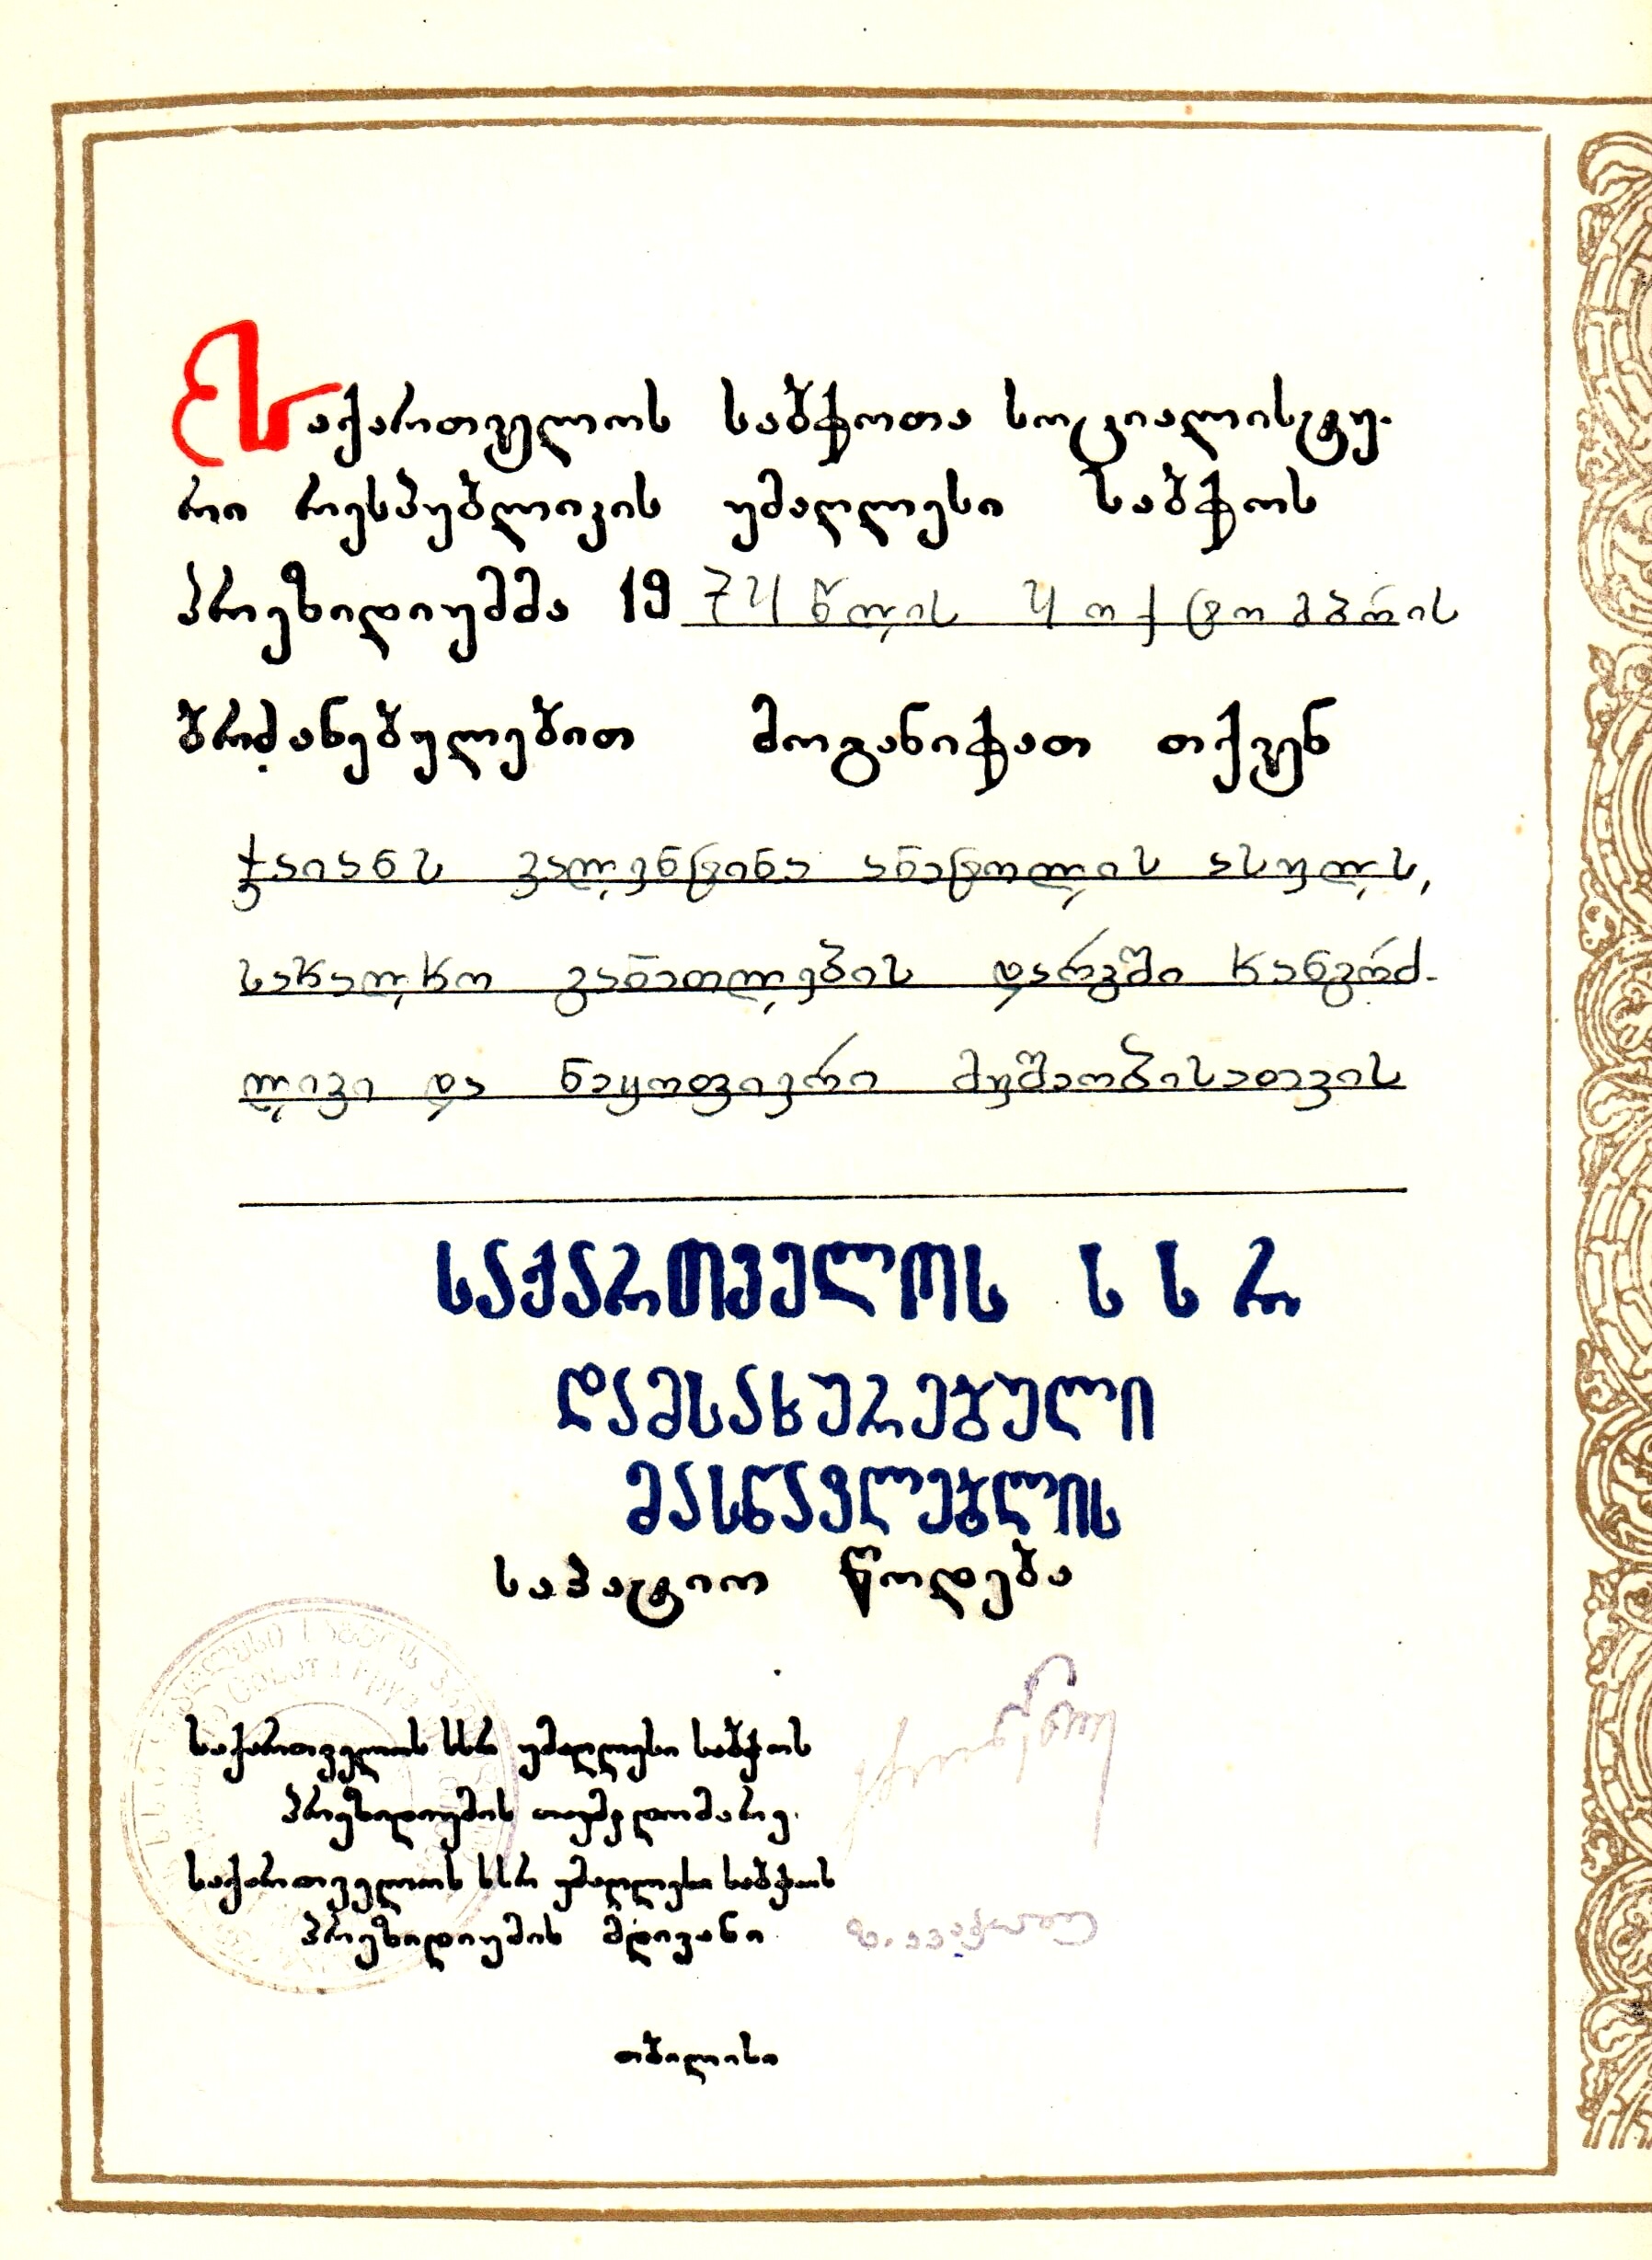 საქართველოს საბჭოთა სოციალისტუ-
რი რესპუბლიკის უმაღლესი საბჭოს
პრეზიდიუმმა 1974 წლის 4 ოქტომბრის
ბრძანებულებით მოგანიჭათ თქვენ
ჭაიანს ვალენტინა ანატოლის ასულს,
სახალხო განათლების დარგში ხანგრძ-
ლივი და ნაყოფიერი მუშაობისათვის
საქართველოს ს ს რ
დამსახურებული
მასწავლებლის
საპატიო წოდება
საქართველოს სსრ უმაღლესი საბჭოს
პრეზიდიუმის თავმჯდომარე
საქართველოს სსრ უმაღლესი საბჭოს
პრეზიდიუმის მდივანი
თბილისი